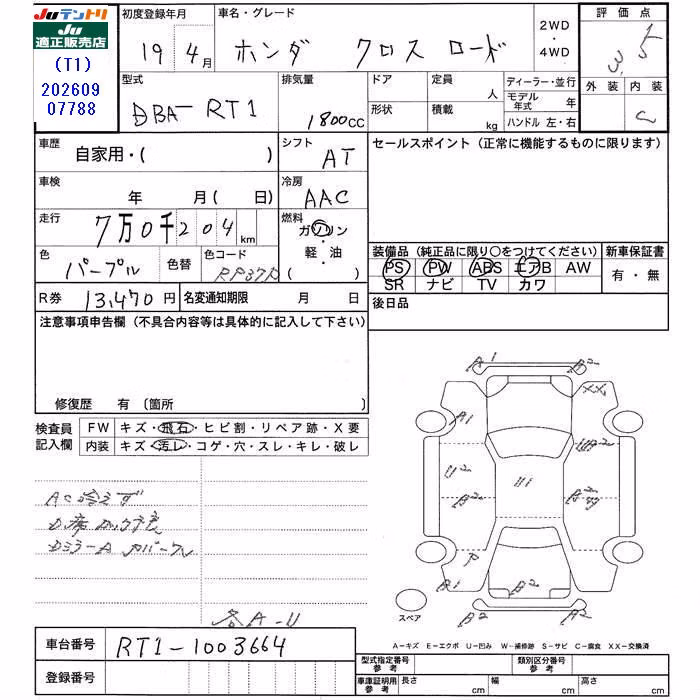 JUテントリ
JU
適正販売店
(T1)
202609
07788
初度登録年月
19 4月
車名・グレード
ホンダ クロス ロード
2WD
・
4WD
評価点
3.5
外装 内装
C
型式
DBA- RT1
排気量
1800cc
ドア
形状
定員
人
積載
kg
ディーラー・並行
モデル年式 年
ハンドル 左・右
車歴
自家用・( )
シフト
AT
セールスポイント (正常に機能するものに限ります)
車検
年 月( 日)
冷房
AAC
走行
7万0千204km
燃料
ガソリン
・
軽・油
( )
色
パープル
色替
色コード
RP37P
装備品 (純正品に限り○をつけてください)
PS PW ABS エアB AW
SR ナビ TV カワ
新車保証書
有・無
R券 13,470円
名変通知期限 月 日
後日品
注意事項申告欄 (不具合内容等は具体的に記入して下さい)
修復歴 有 〔箇所
検査員記入欄
FW キズ・飛石・ヒビ割・リペア跡・X要
内装 キズ・汚レ・コゲ・穴・スレ・キレ・破レ
AC冷えず
D席
DミラーA
各A-U
B1 B2
A1 XX
U2 B2 U1
P
B1 B2 A2
B2
スペア
A−キズ E−エクボ U−凹み W−補修跡 S−サビ C−腐食 XX−交換済
車台番号 RT1-1003664
登録番号
型式指定番号 参考
類別区分番号 参考
車庫証明用 参考
長さ cm
幅 cm
高さ cm